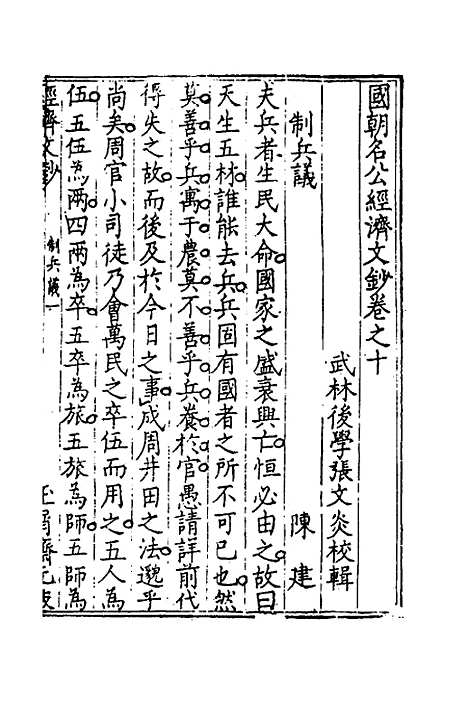 國朝名公經濟文鈔卷之十
武林後學張文炎校輯
制兵議
陳建
夫兵者生民大命國家之盛衰興亡恒必由之故曰
天生五材誰能去兵兵固有國者之所不可已也然
莫善乎兵寓于農莫不善乎兵養於官愚請詳前代
得失之故而後及於今日之事成周井田之法邈乎
尚矣周官小司徒乃會萬民之卒伍而用之五人為
伍五伍為兩四兩為卒五卒為旅五旅為師五師為
經濟文鈔
制兵議一
玉屑齋